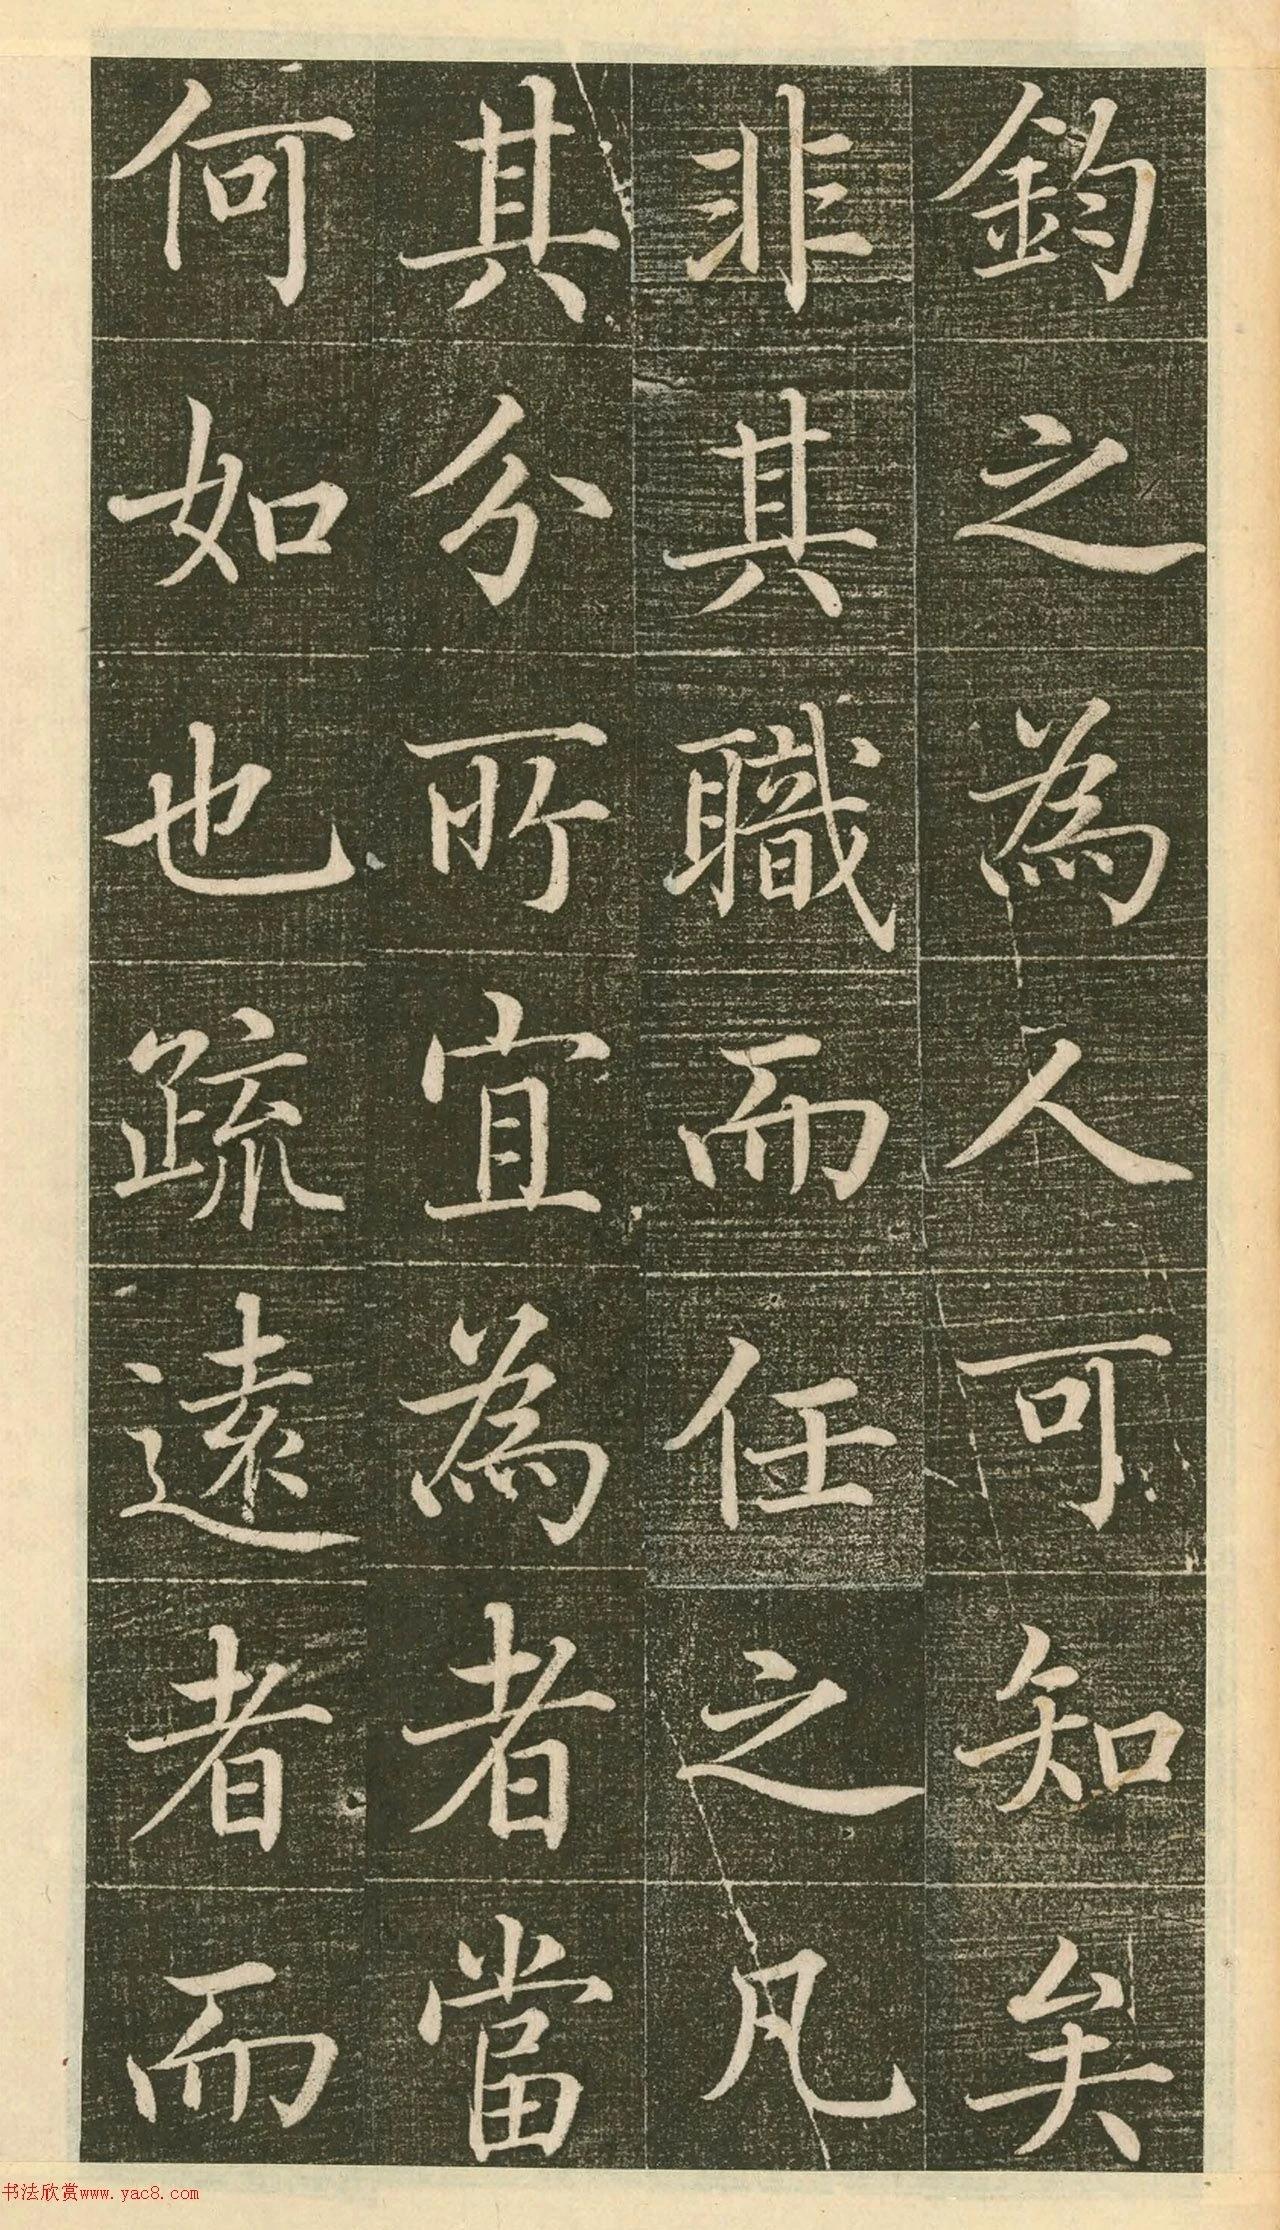 鈞之為人可知矣
非其職而任之凡
其分所宜為者當
何如也疏遠者而
书法欣赏www.yac8.com